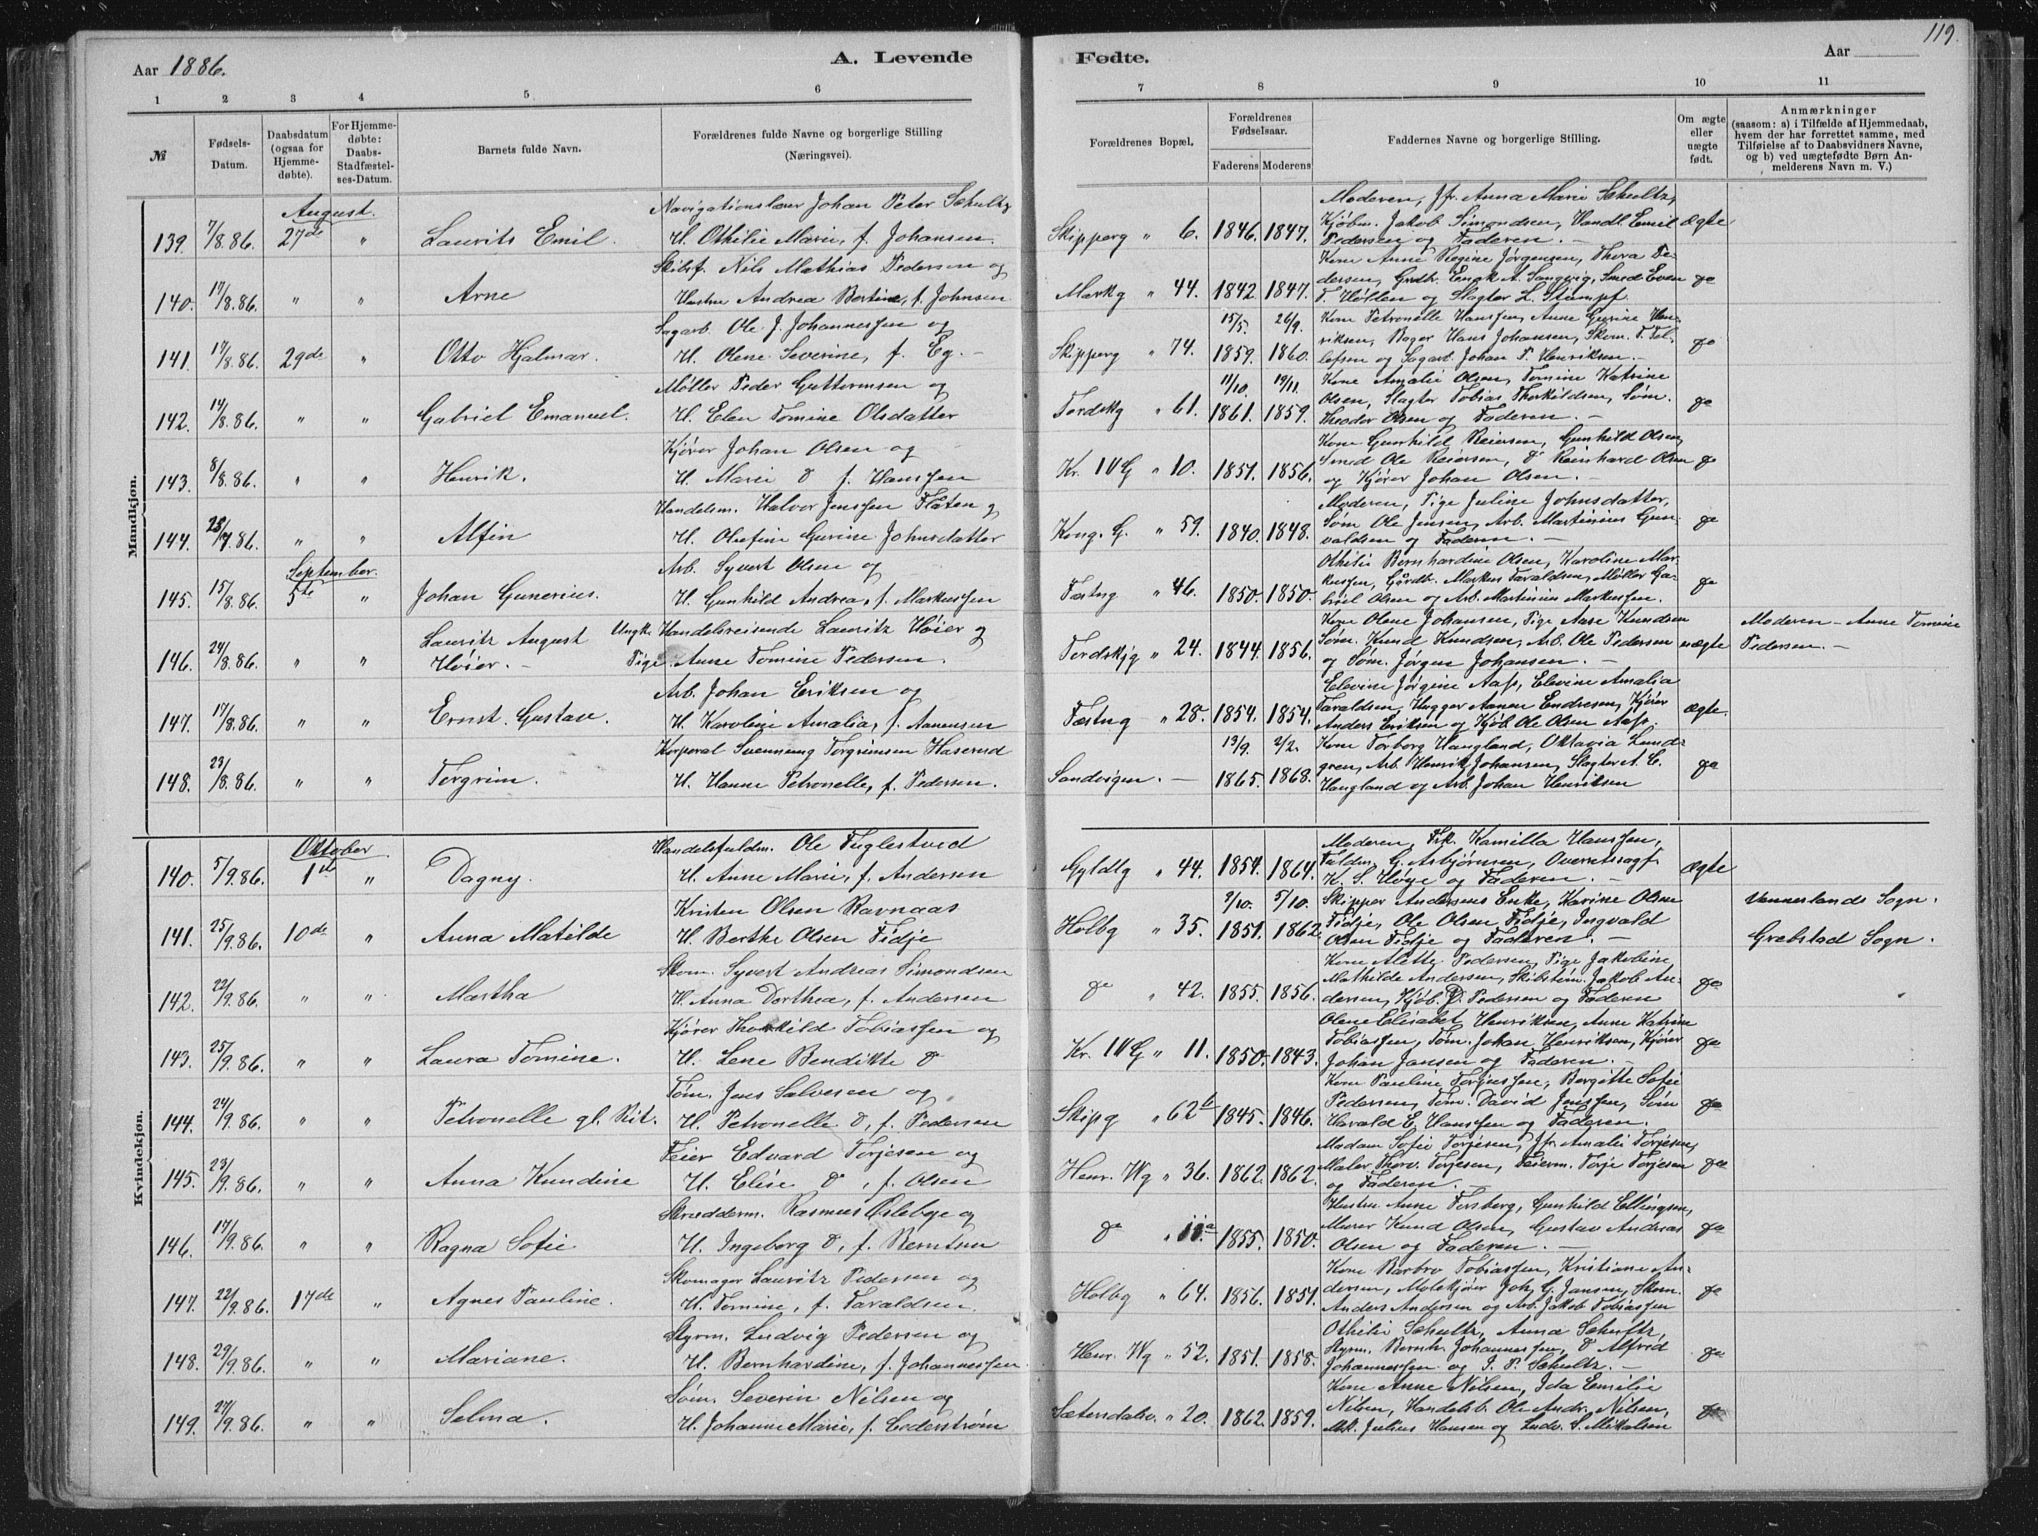 119.
Aar 1886.
A. Levende Fødte.
Aar
1 2 3 4 5 6 7 8 9 10 11
№
Fødsels-Datum.
Daabsdatum (ogsaa for Hjemme-døbte).
For Hjemme-døbte: Daabs-Stadfæstel-ses-Datum.
Barnets fulde Navn.
Forældrenes fulde Navne og borgerlige Stilling
(Næringsvei).
Forældrenes Bopæl.
Forældrenes Fødselsaar.
Faderens Moderens
Faddernes Navne og borgerlige Stilling.
Om ægte eller uægte født.
Anmærkninger
(saasom: a) i Tilfælde af Hjemmedaab,
hvem der har forrettet samme, med
Tilføielse af to Daabsvidners Navne,
og b) ved uægtefødte Børn An-
melderens Navn m. V.)
Mandkjøn.
August.
139. 7/8.86. 27de " Laurits Emil.
Navigationslærer Johan Peter Schultz
H. Othilie Marie, f. Johansen.
Skipperg " 6. 1846. 1847.
Moderen, Jfr. Anna Marie Schultz,
Kjøbm. Jakob Simondsen, Handl. Emil
Pedersen og Faderen. —
ægte
140. 17/8.86. " " Arne
Skibsf. Nils Mathias Pedersen og
Hustru Andrea Bertine, f. Johnsen
Markg " 44. 1842. 1847.
Kone Anne Regine Jørgensen, Thora Pe-
dersen, Grdbr. Enok A. Sangvig, Smed Even
T. Hølllen og Slagter L. Stumpf.
do
141. 17/8.86. 29de " Otto Hjalmar.
Sagarb. Ole J. Johannessen og
H. Olene Severine, f. Eg. —
Skipperg " 74. 15/5. 1859. 26/9. 1860.
Kone Petronelle Hanssen, Anne Gurine Hen-
riksen, Bager Hans Johansen, Skom. T. Tol-
lefsen og Sagarb. Johan P. Henriksen. —
do
142. 14/8.86. " " Gabriel Emanuel.
Møller Peder Guttormsen og
H. Elen Tomine Olsdatter
Tordskg " 61. 11/10. 1861. 19/11. 1859.
Kone Amalie Olsen, Tomine Katrine
Olsen, Slagter Tobias Thorkildsen, Søm.
Theodor Olsen og Faderen. —
do
143. 8/8.86. " " Henrik.
Kjører Johan Olsen og
H. Marie D f. Hanssen
Kr. IV G " 10. 1851. 1856.
Kone Gunhild Reiersen, Gunhild Olsen,
Smed Ole Reiersen, D Reinhard Olsen
og Kjører Johan Olsen. —
do
144. 25/7.86. " " Alfin
Handelsm. Halvor Jenssen Flaten og
H. Olefine Gurine Johnsdatter
Kong. G. " 59. 1840. 1848.
Moderen, Pige Juline Johnsdatter,
Søm. Ole Jensen, Arb. Martinius Gun-
valdsen og Faderen. —
do
September.
145. 15/8.86. 5te " Johan Gunerius.
Arb. Syvert Olsen og
H. Gunhild Andrea, f. Markussen
Fæstng " 46. 1850. 1850.
Othilie Bernhardine Olsen, Karoline Mar-
kussen, Gårdb. Markus Taraldsen, Møller Ga-
briel Olsen og Arb. Martinius Markussen.
do
146. 24/8.86. " " Lauritz August Høier. —
Ungk. Handelsreisende Lauritz Høier og
Pige Anne Tomine Pedersen.
Tordskjg " 24. 1844. 1856.
Kone Olene Johansen, Pige Aase Knudsen
Søm. Knud Knudsen, Arb. Ole Pedersen
og Søm. Jørgen Johansen. —
uægte
Moderen — Anne Tomine
Pedersen. —
147. 17/8.86. " " Ernst Gustav.
Arb. Johan Eriksen og
H. Karoline Amalia, f. Aanensen
Fæstng " 28. 1854. 1854.
Elevine Jørgine Aas, Elevine Amalia
Taraldsen, Hugger Aanen Endresen, Kjører
Anders Eriksen og Kjøb. Ole Olsen Aas.
ægte.
148. 23/8.86. " " Torgrim.
Korporal Svennung Torgrimsen Haserud
H. Hanne Petronelle, f. Pedersen.
Sandvigen. — 13/9. 1865. 2/2. 1868.
Kone Torborg Haugland, Oktavia Lund-
gren, Arb. Henrik Johansen, Slagter A. C.
Haugland og Arb. Johan Henriksen
do
Kvindekjøn.
Oktober
140. 5/9.86. 1ste " Dagny.
Handelsfuldm. Ole Fuglestved
H. Anne Marie, f. Andersen
Gyldlg " 44. 1854. 1864.
Moderen, Frk. Kamilla Hanssen,
Fuldm. G. Asbjørnsen, Overretssagf.
K. S. Høye og Faderen. —
ægte
141. 25/9.86. 10de " Anna Matilde
Kristen Olsen Ravnaas
H. Berthe Olsen Fidje
Holbg " 35. 9/10. 1851. 5/10. 1862.
Skipper Andersens Enke, Karine Olsen
Fidje, Ole Olsen Fidje, Ingvald
Olsen Fidje og Faderen. —
Vennerslands Sogn.
Grebstad Sogn.
142. 22/9.86. " " Martha
Skom. Syvert Andreas Simondsen
H. Anna Dorthea, f. Andersen
do " 42. 1855. 1856.
Kone Alette Pedersen, Pige Jakobine
Mathilde Andersen, Skibstøm. Jakob An-
dersen, Kjøb. P. Pedersen og Faderen
do
143. 25/9.86. " " Laura Tomine.
Kjører Thorkild Tobiassen og
H. Lene Bendikte D
Kr. IV G " 11. 1850. 1843.
Olene Elisabet Henriksen, Anne Katrine
Tobiassen, Tøm. Johan Henriksen, Kjører
Johan Jansen og Faderen. —
do
144. 24/9.86. " " Petronelle gl. Rit.
Tøm. Jens Salvesen og
H. Petronelle D, f. Pedersen
Skipg " 62b 1845. 1846.
Kone Pauline Torjussen, Bergitte Sofie
Pedersen, Tøm. David Jenssen, Søm
Harald E. Hanssen og Faderen.
do
145. 23/9.86. " " Anna Kundine
Feier Edvard Torjesen og
H. Elise D, f. Olsen
Henr. Wg " 36. 1862. 1862.
Madam Sofie Torjesen, Jfr. Amalie Torjesen,
Maler Thorv. Torjesen, Feierm. Torje Torjesen
og Faderen.
do
146. 17/9.86. " " Ragna Sofie
Skrædderm. Rasmus Oslebye og
H. Ingeborg D, f. Berntsen
do " 11a 1855. 1850.
Hustru Anne Forsberg, Gunhild Ellingsen,
Murer Knud Olsen, Gustav Andreas
Olsen og Faderen. —
do
147. 22/9.86. 17de " Agnes Pauline.
Skomager Lauritz Pedersen og
H. Tomine, f. Taraldsen.
Holbg " 64. 1856. 1851.
Kone Barbro Tobiassen, Kristiane An-
dersen, Molekjører Joh. G. Jansen, Skom.
Anders Andersen og Arb. Jakob Tobiassen
do
148. 29/9.86. " " Mariane.
Styrm. Ludvig Pedersen og
H. Bernhardine, f. Johannessen
Henr. Wg " 52. 1851. 1858.
Othilie Schultz, Anna Schultz,
Styrm. Bernh. Johannessen, D Alfred
Johannessen og J. P. Schultz. —
do
149. 24/9.86. " " Selma.
Søm. Severin Nilsen og
H. Johanne Marie, f. Cederstrøm
Sætersdalsv. " 20. 1862. 1859.
Kone Anne Nilsen, Ida Emilie
Nilsen, Handelsb. Ole Andr. Nilsen,
Msk. Julius Hansen og Ludv. S. Mikalsen
do